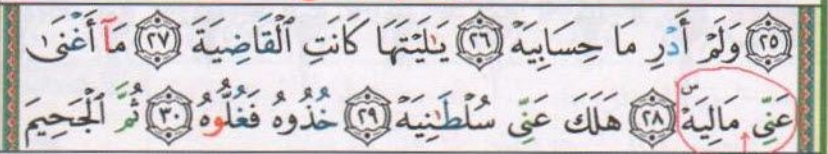 ﴿٢٥﴾ وَلَمْ أَدْرِ مَا حِسَابِيَهْ ﴿٢٦﴾ يَـٰلَيْتَهَا كَانَتِ ٱلْقَاضِيَةَ ﴿٢٧﴾ مَآ أَغْنَىٰ
عَنِّي مَالِيَهْۜ ﴿٢٨﴾ هَلَكَ عَنِّي سُلْطَـٰنِيَهْ ﴿٢٩﴾ خُذُوهُ فَغُلُّوهُ ﴿٣٠﴾ ثُمَّ ٱلْجَحِيمَ